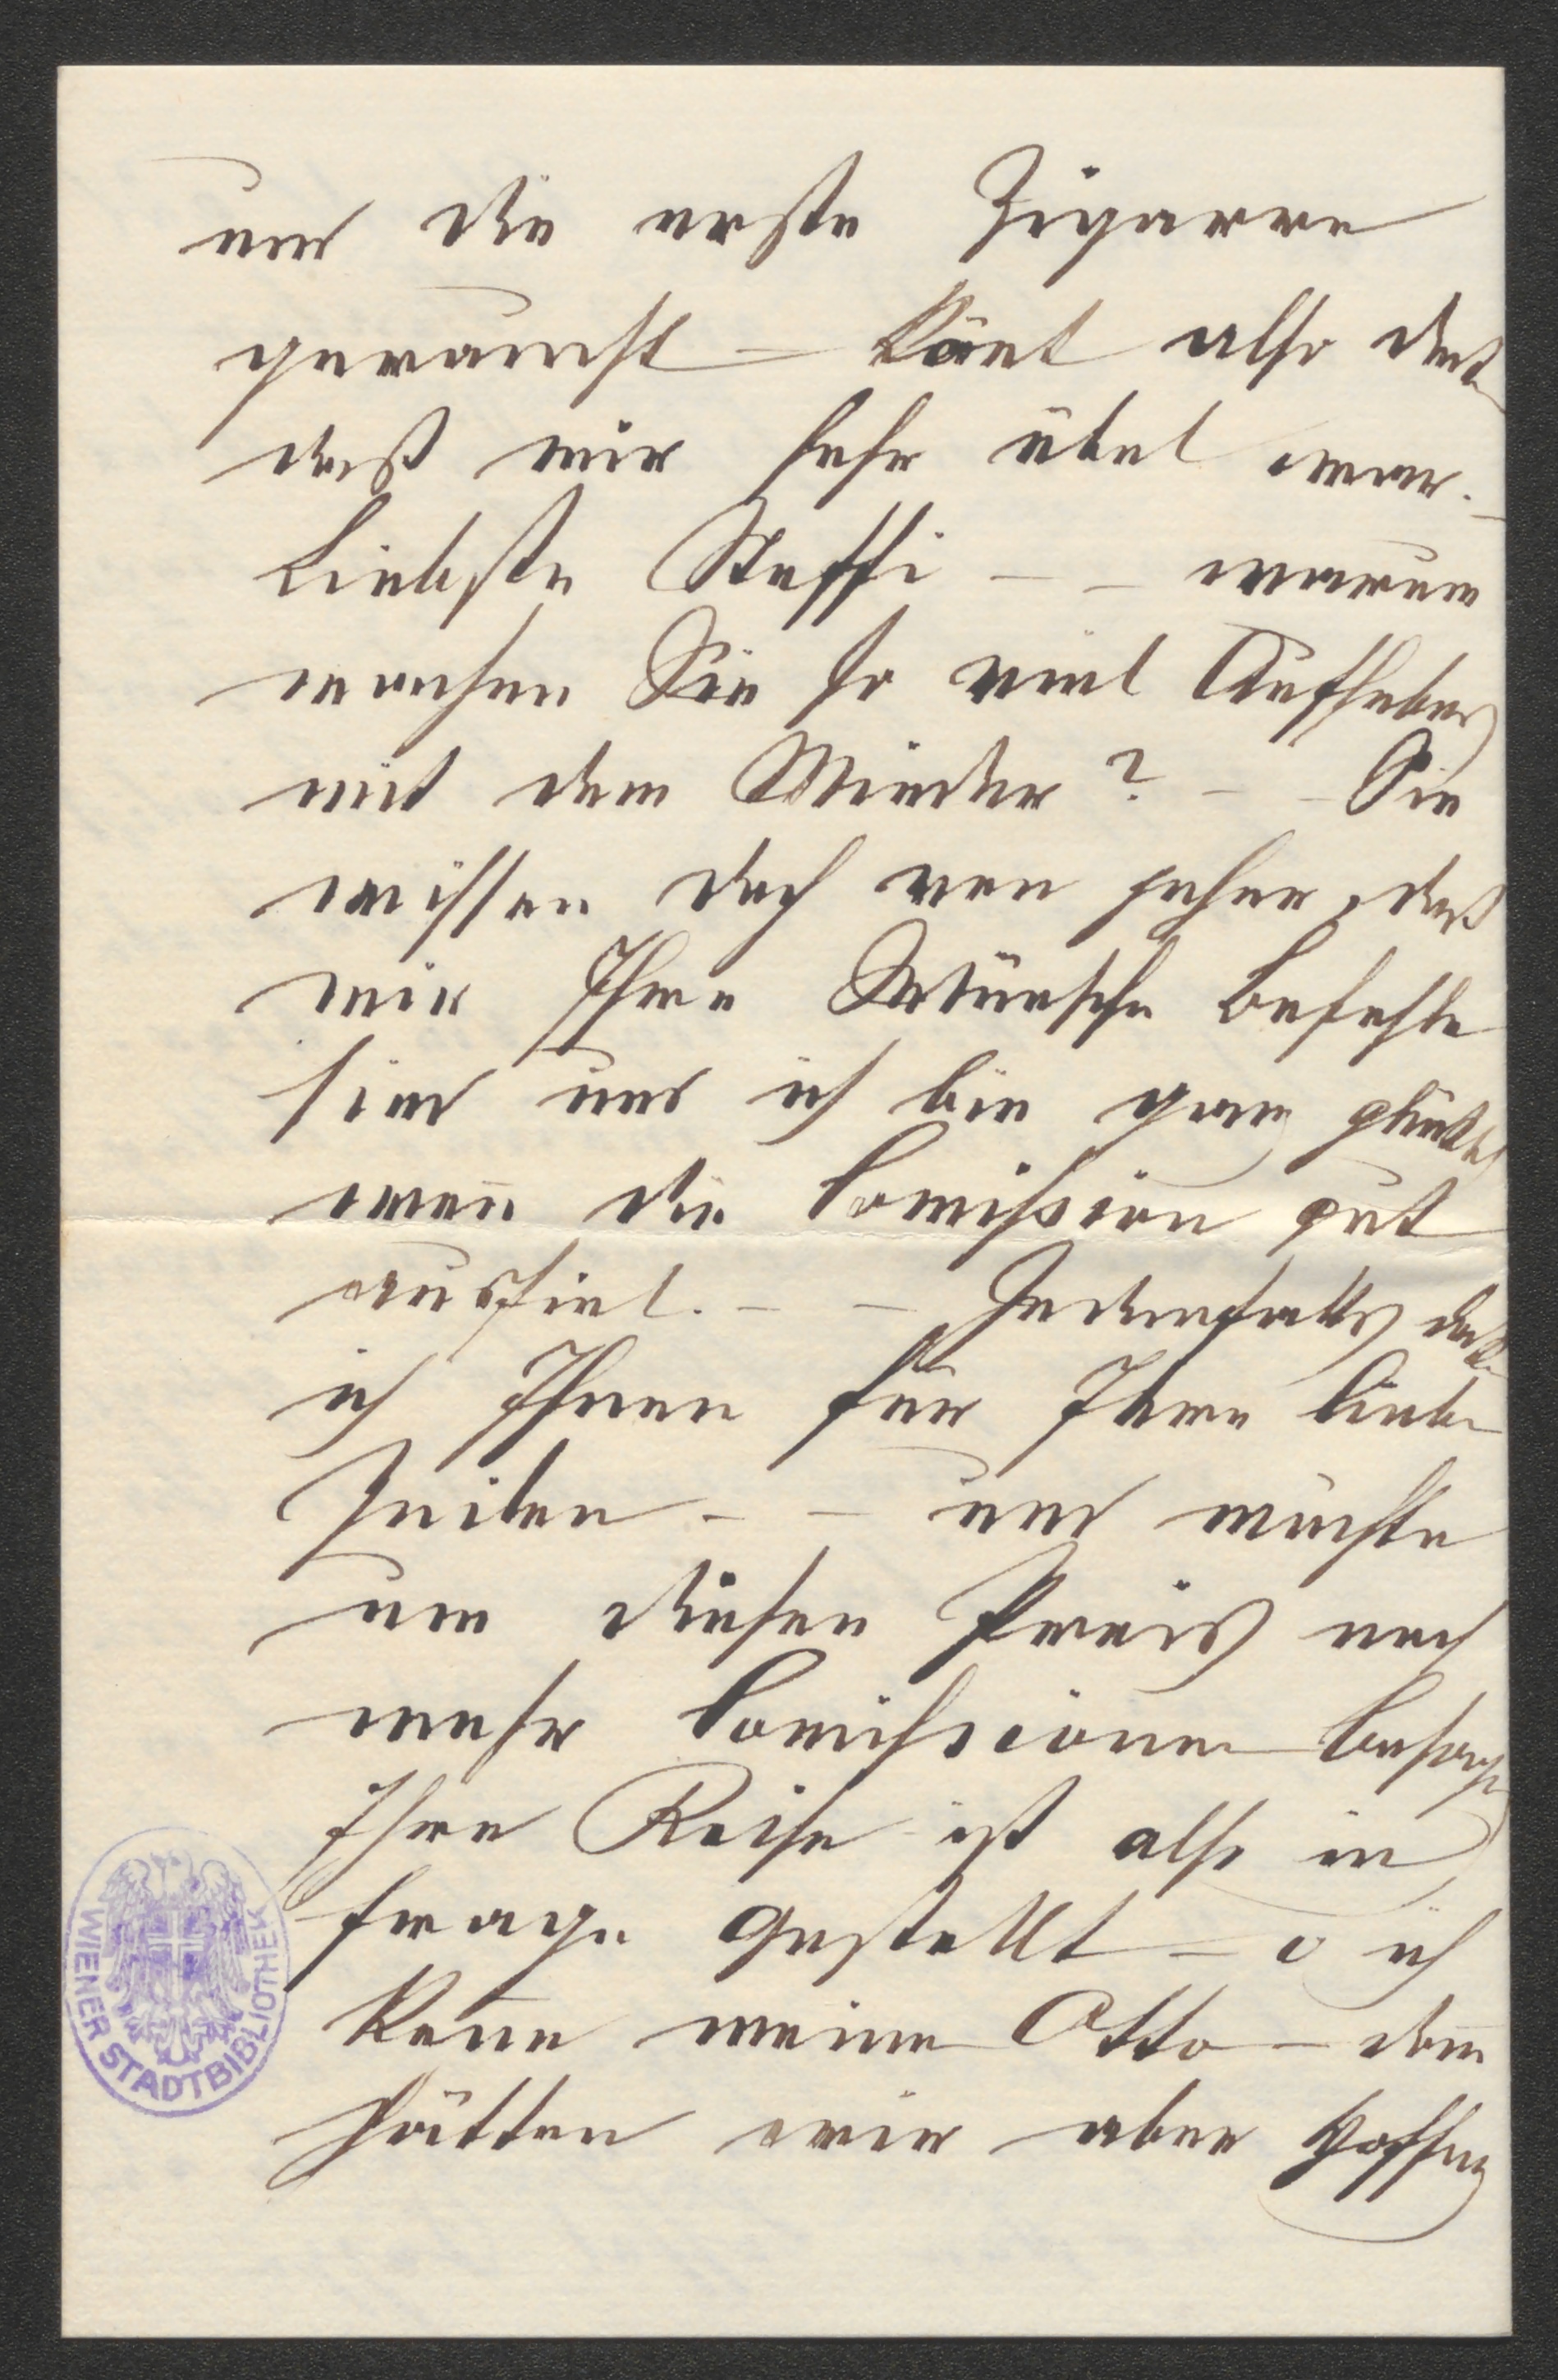 und die erste Zigarre
geraucht – könt also
daß mir sehr übel war. –
Liebste Steffi – – warum
machen Sie so viel Aufheben
mit dem Mieder? – – Sie
wissen doch von jeher, daß
mir Ihre Wünsche Befehle
sind und ich bin ganz glückl
wen̅ die Com̅ission gut
ausfiel. – – Jedenfalls danke
ich Ihnen für Ihre lieben
Zeilen – – und möchte
um diesen Preis noch
mehr Com̅issionen besorgen
Ihre Reise ist also in
frage gestellt – o ich
ken̅e meinen Otto – dan̅
hätten wir aber Hoffng
WIENER STADTBIBLIOTHEK